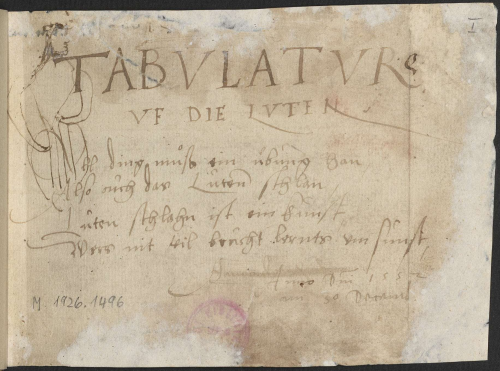 I
TABVLATVR
VF DIE LVTEN
All ding muͦß ein uͤbung han
Also ouch das Luten schlan
Luten schlahn ist ein kunst
Wers nit wil brucht lernts um sunst
Anno Dni 1552
am 30 Decemb
M. 1926.1496